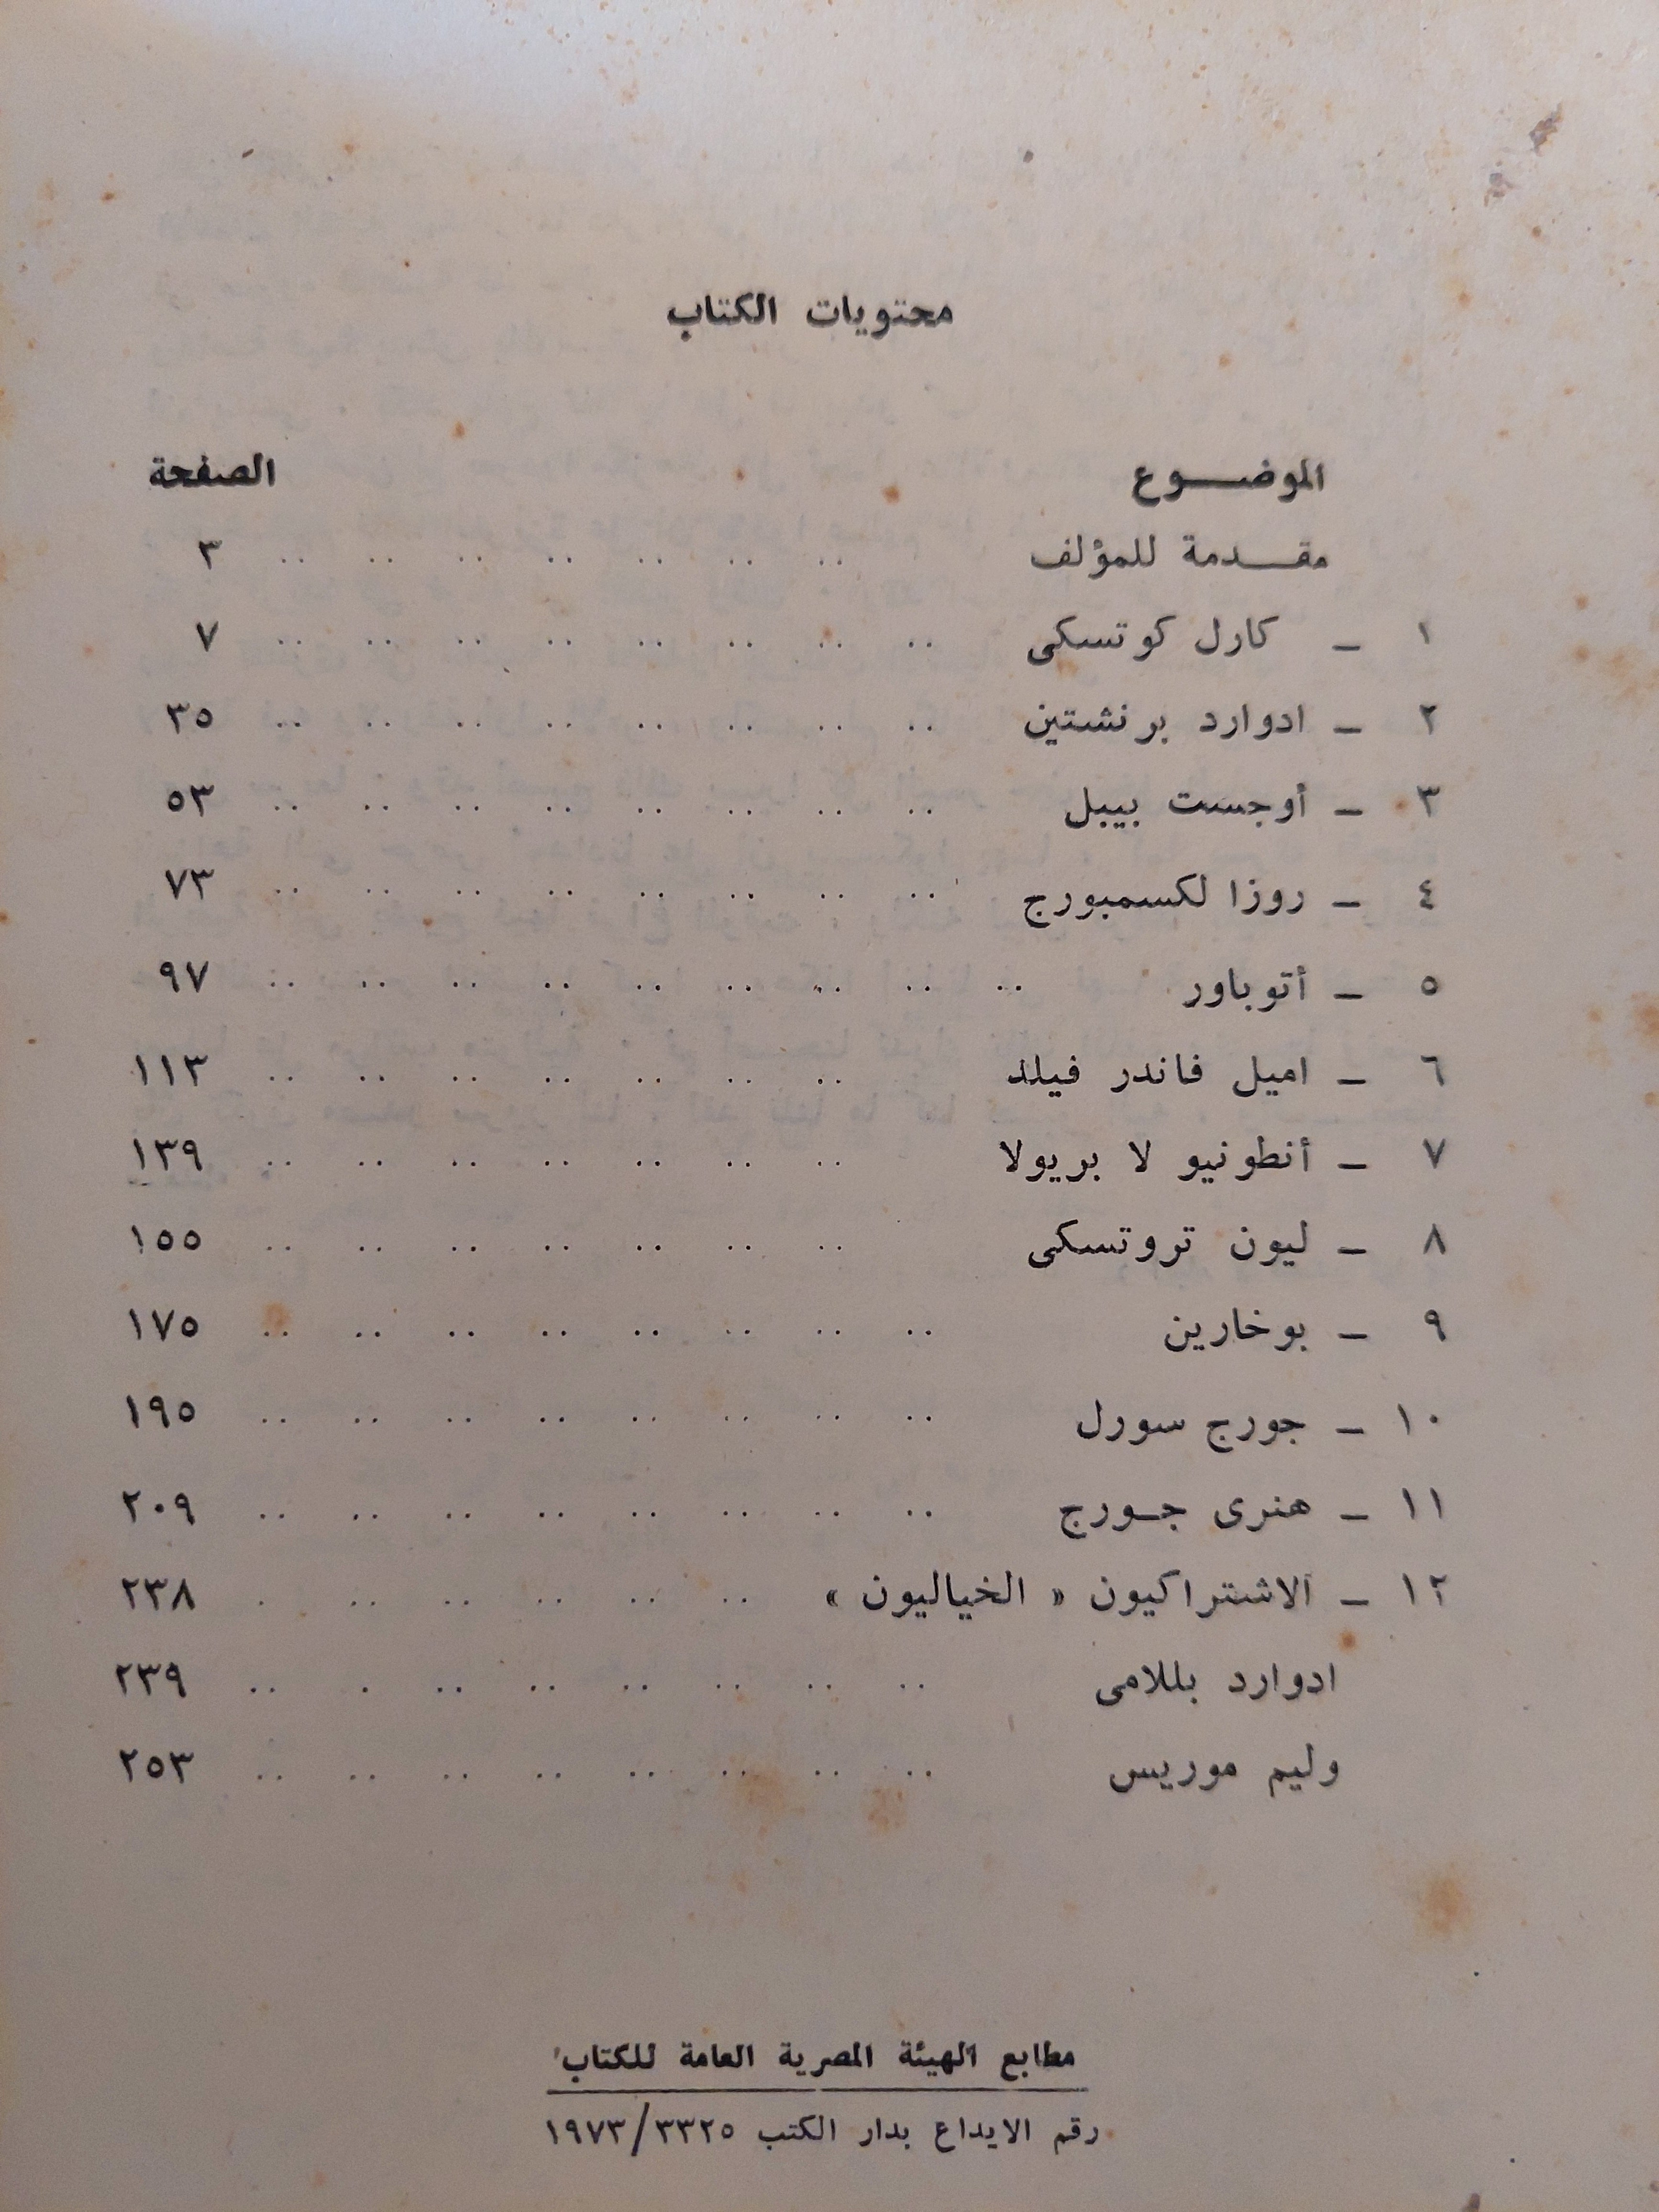 محتويات الكتاب
الموضــوع الصفحة
مقــدمة للمؤلف .. .. .. .. .. .. .. ٣
١ ـ كارل كوتسكى .. .. .. .. .. .. .. .. ٧
٢ ـ ادوارد برنشتين .. .. .. .. .. .. .. .. ٣٥
٣ ـ أوجست بيبل .. .. .. .. .. .. .. .. ٥٣
٤ ـ روزا لكسمبورج .. .. .. .. .. .. .. .. ٧٣
٥ ـ أتوباور .. .. .. .. .. .. .. .. .. ٩٧
٦ ـ اميل فاندر فيلد .. .. .. .. .. .. .. ١١٣
٧ ـ أنطونيو لا بريولا .. .. .. .. .. .. .. ١٣٩
٨ ـ ليون تروتسكى .. .. .. .. .. .. .. ١٥٥
٩ ـ بوخارين .. .. .. .. .. .. .. .. ١٧٥
١٠ ـ جورج سورل .. .. .. .. .. .. .. .. ١٩٥
١١ ـ هنرى جـورج .. .. .. .. .. .. .. .. ٢٠٩
١٢ ـ الاشتراكيون « الخياليون » .. .. .. .. .. . ٢٣٨
ادوارد بللامى .. .. .. .. .. .. . .. ٢٣٩
وليم موريس .. .. .. .. .. .. .. .. ٢٥٣
مطابع الهيئة المصرية العامة للكتاب
رقم الايداع بدار الكتب ١٩٧٣/٣٣٢٥